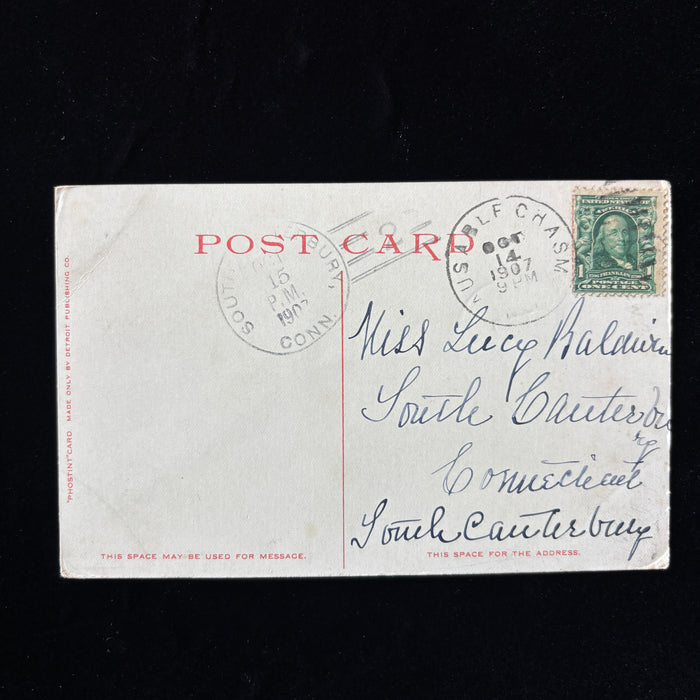 POST CARD
SOUTH CANTERBURY, CONN.
OCT
15
P.M.
1907
AUSABLE CHASM
OCT
14
1907
9 PM
UNITED STATES OF AMERICA
FRANKLIN
1 1
POSTAGE
ONE CENT
Miss Lucy Baldwin
South Canterbu
ry
Connecticut
South Canterbury
"PHOSTINT" CARD MADE ONLY BY DETROIT PUBLISHING CO.
THIS SPACE MAY BE USED FOR MESSAGE.
THIS SPACE FOR THE ADDRESS.